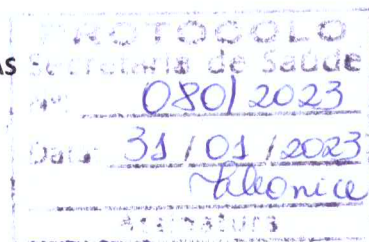 PROTOCOLO
AS Secretaria de Saúde
Nº 080/2023
Data: 31/01/2023
Assinatura